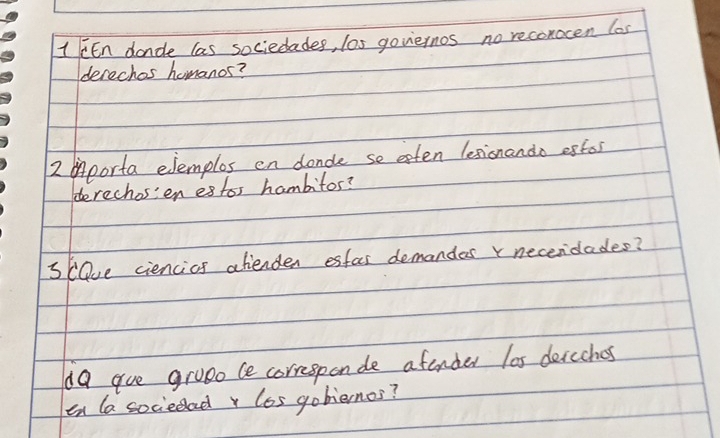 1 ¿En donde las sociedades, los goviernos no reconocen los
derechos humanos?
2 Aporta ejemplos en donde se esten lesionando estos
derechos: en estos hambitos?
3 ¿Que ciencias atienden estas demandas y necesidades?
¿A que grupo le corresponde atender los derechos
en la sociedad y los gobiernos?